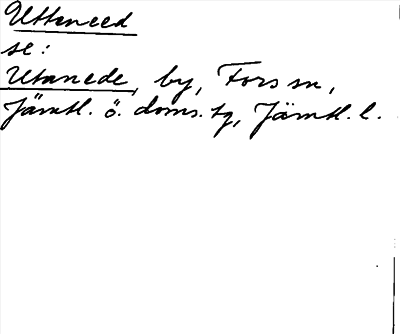 Utteneed
se:
Utanede, by, Fors sn,
Jämtl. ö. doms. tg, Jämtl. l.